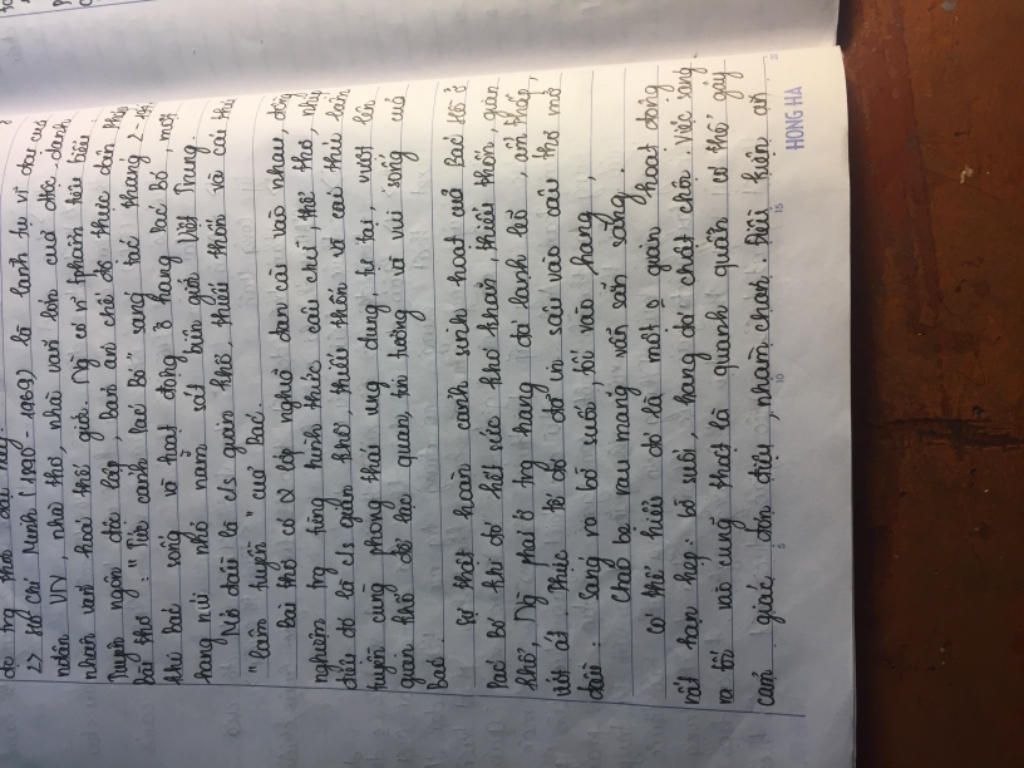 do trg thơ
2> Hồ Chí Minh (1890 - 1969) là lãnh tụ vĩ đại củ
nhân VN, nhà thơ, nhà văn lớn của dtộc. danh
nhân văn hoá thế giới. Ng có n~ phẩm tiêu biểu:
Tuyên ngôn độc lập, bản án chế độ thực dân Pháp
Bài thơ: "Tức cảnh Pác Bó" sáng tác tháng 2-19
khi Bác sống và hoạt động ở hang Pác Bó, một
hang núi nhỏ nằm sát biên giới Việt Trung.
Nó đấy là c/s gian khổ, thiếu thốn và cái thú
"lâm tuyền" của Bác.
Bài thơ có 2 lớp nghĩa đan cài vào nhau, đồng
nghiệm trg từng hình thức câu chữ, thể thơ, nhịp
điệu đó là c/s gian khổ, thiếu thốn vs cái thú lâm
tuyền cùng phong thái ung dung, tự tại, vượt lên
gian khổ đó lạc quan, tin tưởng và vui sống của
Bác.
Sự thật hoàn cảnh sinh hoạt của Bác Hồ ở
Pác Bó khi đó hết sức khó khăn, thiếu thốn, gian
khổ, Ng phải ở trg hang đá lạnh lẽo, ẩm thấp,
ướt át. Thực tế đó đã in sâu vào câu thơ mở
đầu:
Sáng ra bờ suối, tối vào hang,
Cháo bẹ rau măng vẫn sẵn sàng.
Có thể hiểu đó là một o gian hoạt động
rất hạn hẹp: bờ suối, hang đá chật chội. Việc sáng
ra tối vào cũng thật là quanh quẩn có thể gây
cảm giác đơn điệu, nhàm chán. Điều kiện ăn
5
10
15
20
HONG HA